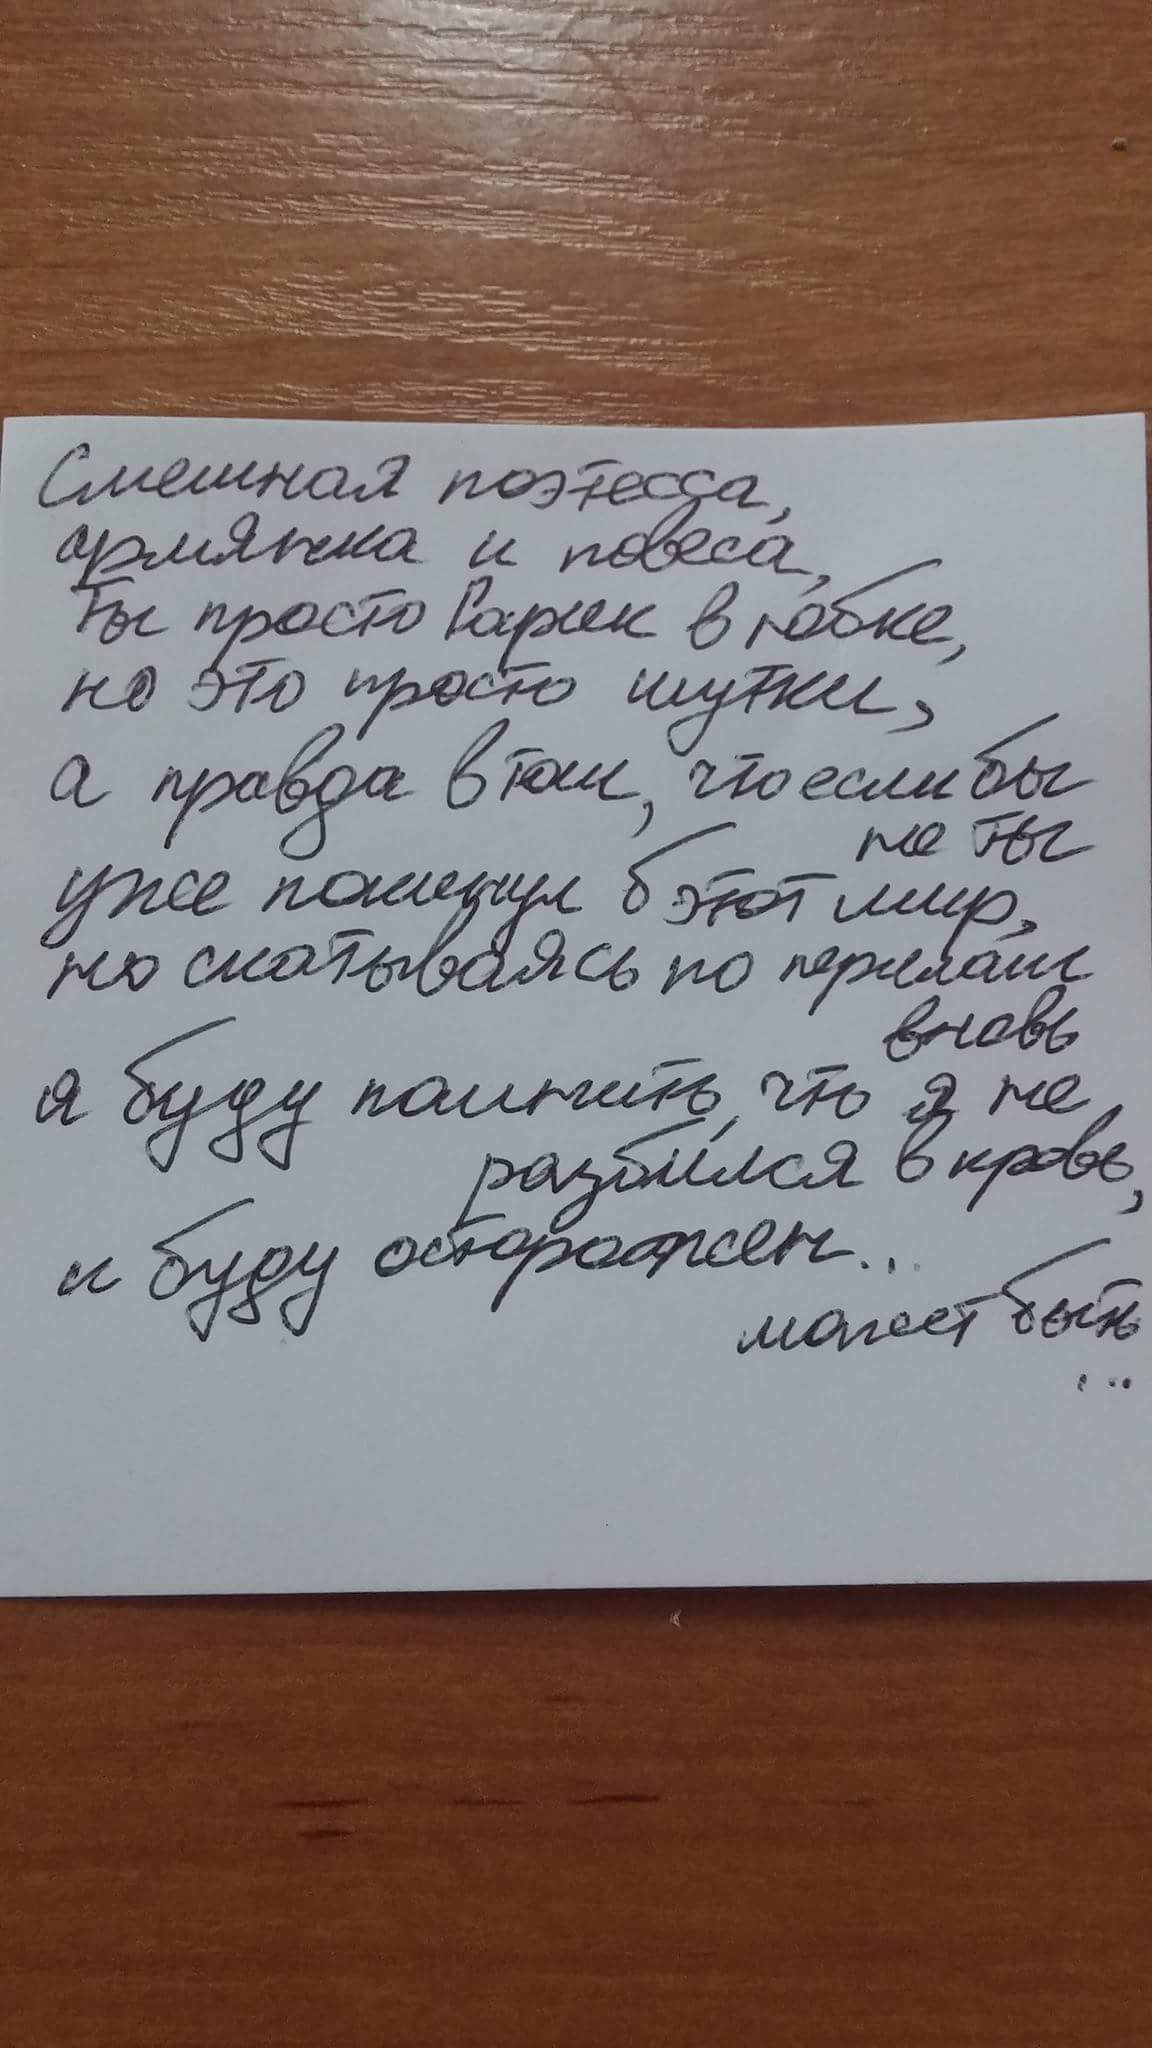 Смешная поэтесса,
армянка и повеса,
ты просто Гарик в юбке,
но это просто шутки,
а правда в том, что если бы
не ты
уже покинул б этот мир,
но скатываясь по перилам
вновь
я буду помнить, что я не
разбился в кровь,
и буду осторожен...
может быть
...